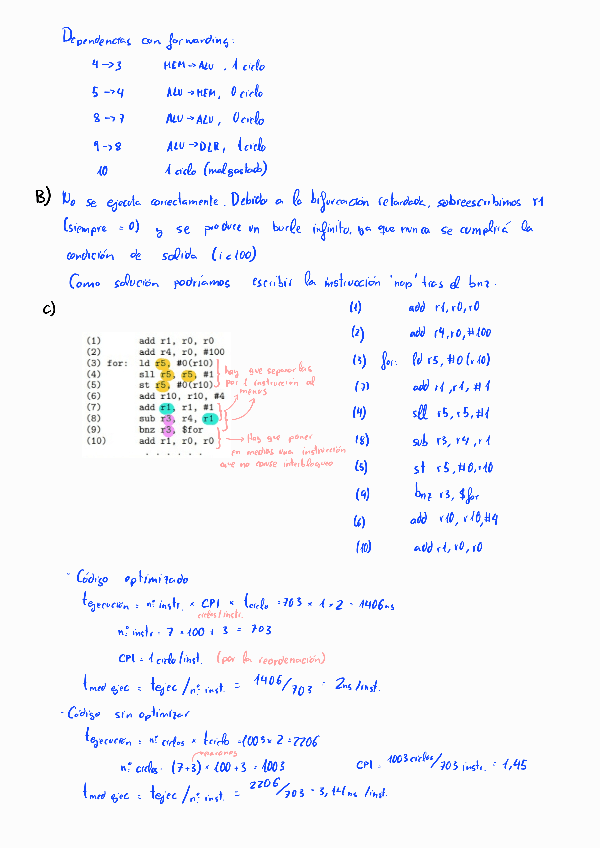 Dependencias con forwarding:
4 → 3 MEM → ALU, 1 ciclo
5 → 4 ALU → MEM, 0 ciclo
8 → 7 ALU → ALU, 0 ciclo
9 → 8 ALU → DLR, 1 ciclo
10 1 ciclo (malgastado)
B) No se ejecuta correctamente. Debido a la bifurcación retardada, sobreescribimos r1
(siempre = 0) y se produce un bucle infinito, ya que nunca se cumplirá la
condición de salida (i < 100)
Como solución podríamos escribir la instrucción 'nop' tras el bnz.
c)
(1) add r1, r0, r0
(2) add r4, r0, #100
(3) for: ld r5, #0(r10)
(4) sll r5, r5, #1
(5) st r5, #0(r10)
(6) add r10, r10, #4
(7) add r1, r1, #1
(8) sub r3, r4, r1
(9) bnz r3, $for
(10) add r1, r0, r0
. . . . . .
hay que separarlas
por 1 instrucción al
menos
Hay que poner
en medias una instrucción
que no cause interbloqueo
(1) add r1, r0, r0
(2) add r4, r0, #100
(3) for: ld r5, #0(r10)
(7) add r1, r1, #1
(4) sll r5, r5, #1
(8) sub r3, r4, r1
(5) st r5, #0, r10
(9) bnz r3, $for
(6) add r10, r10, #4
(10) add r1, r0, r0
- Código optimizado
tejecución = nº instr. × CPI × tciclo = 703 × 1 × 2 = 1406 ns
ciclos/instr.
nº instr = 7 × 100 + 3 = 703
CPI = 1 ciclo/inst. (por la reordenación)
tmed ejec = tejec / nº inst. = 1406/703 = 2ns/inst.
- Código sin optimizar
tejecución = nº ciclos × tciclo = 1003 × 2 = 2206
nº ciclos = (7+3) × 100 + 3 = 1003 CPI = 1003 ciclos/703 instr. = 1,45
tmed ejec = tejec / nº inst. = 2206/703 = 3,14 ns/inst.